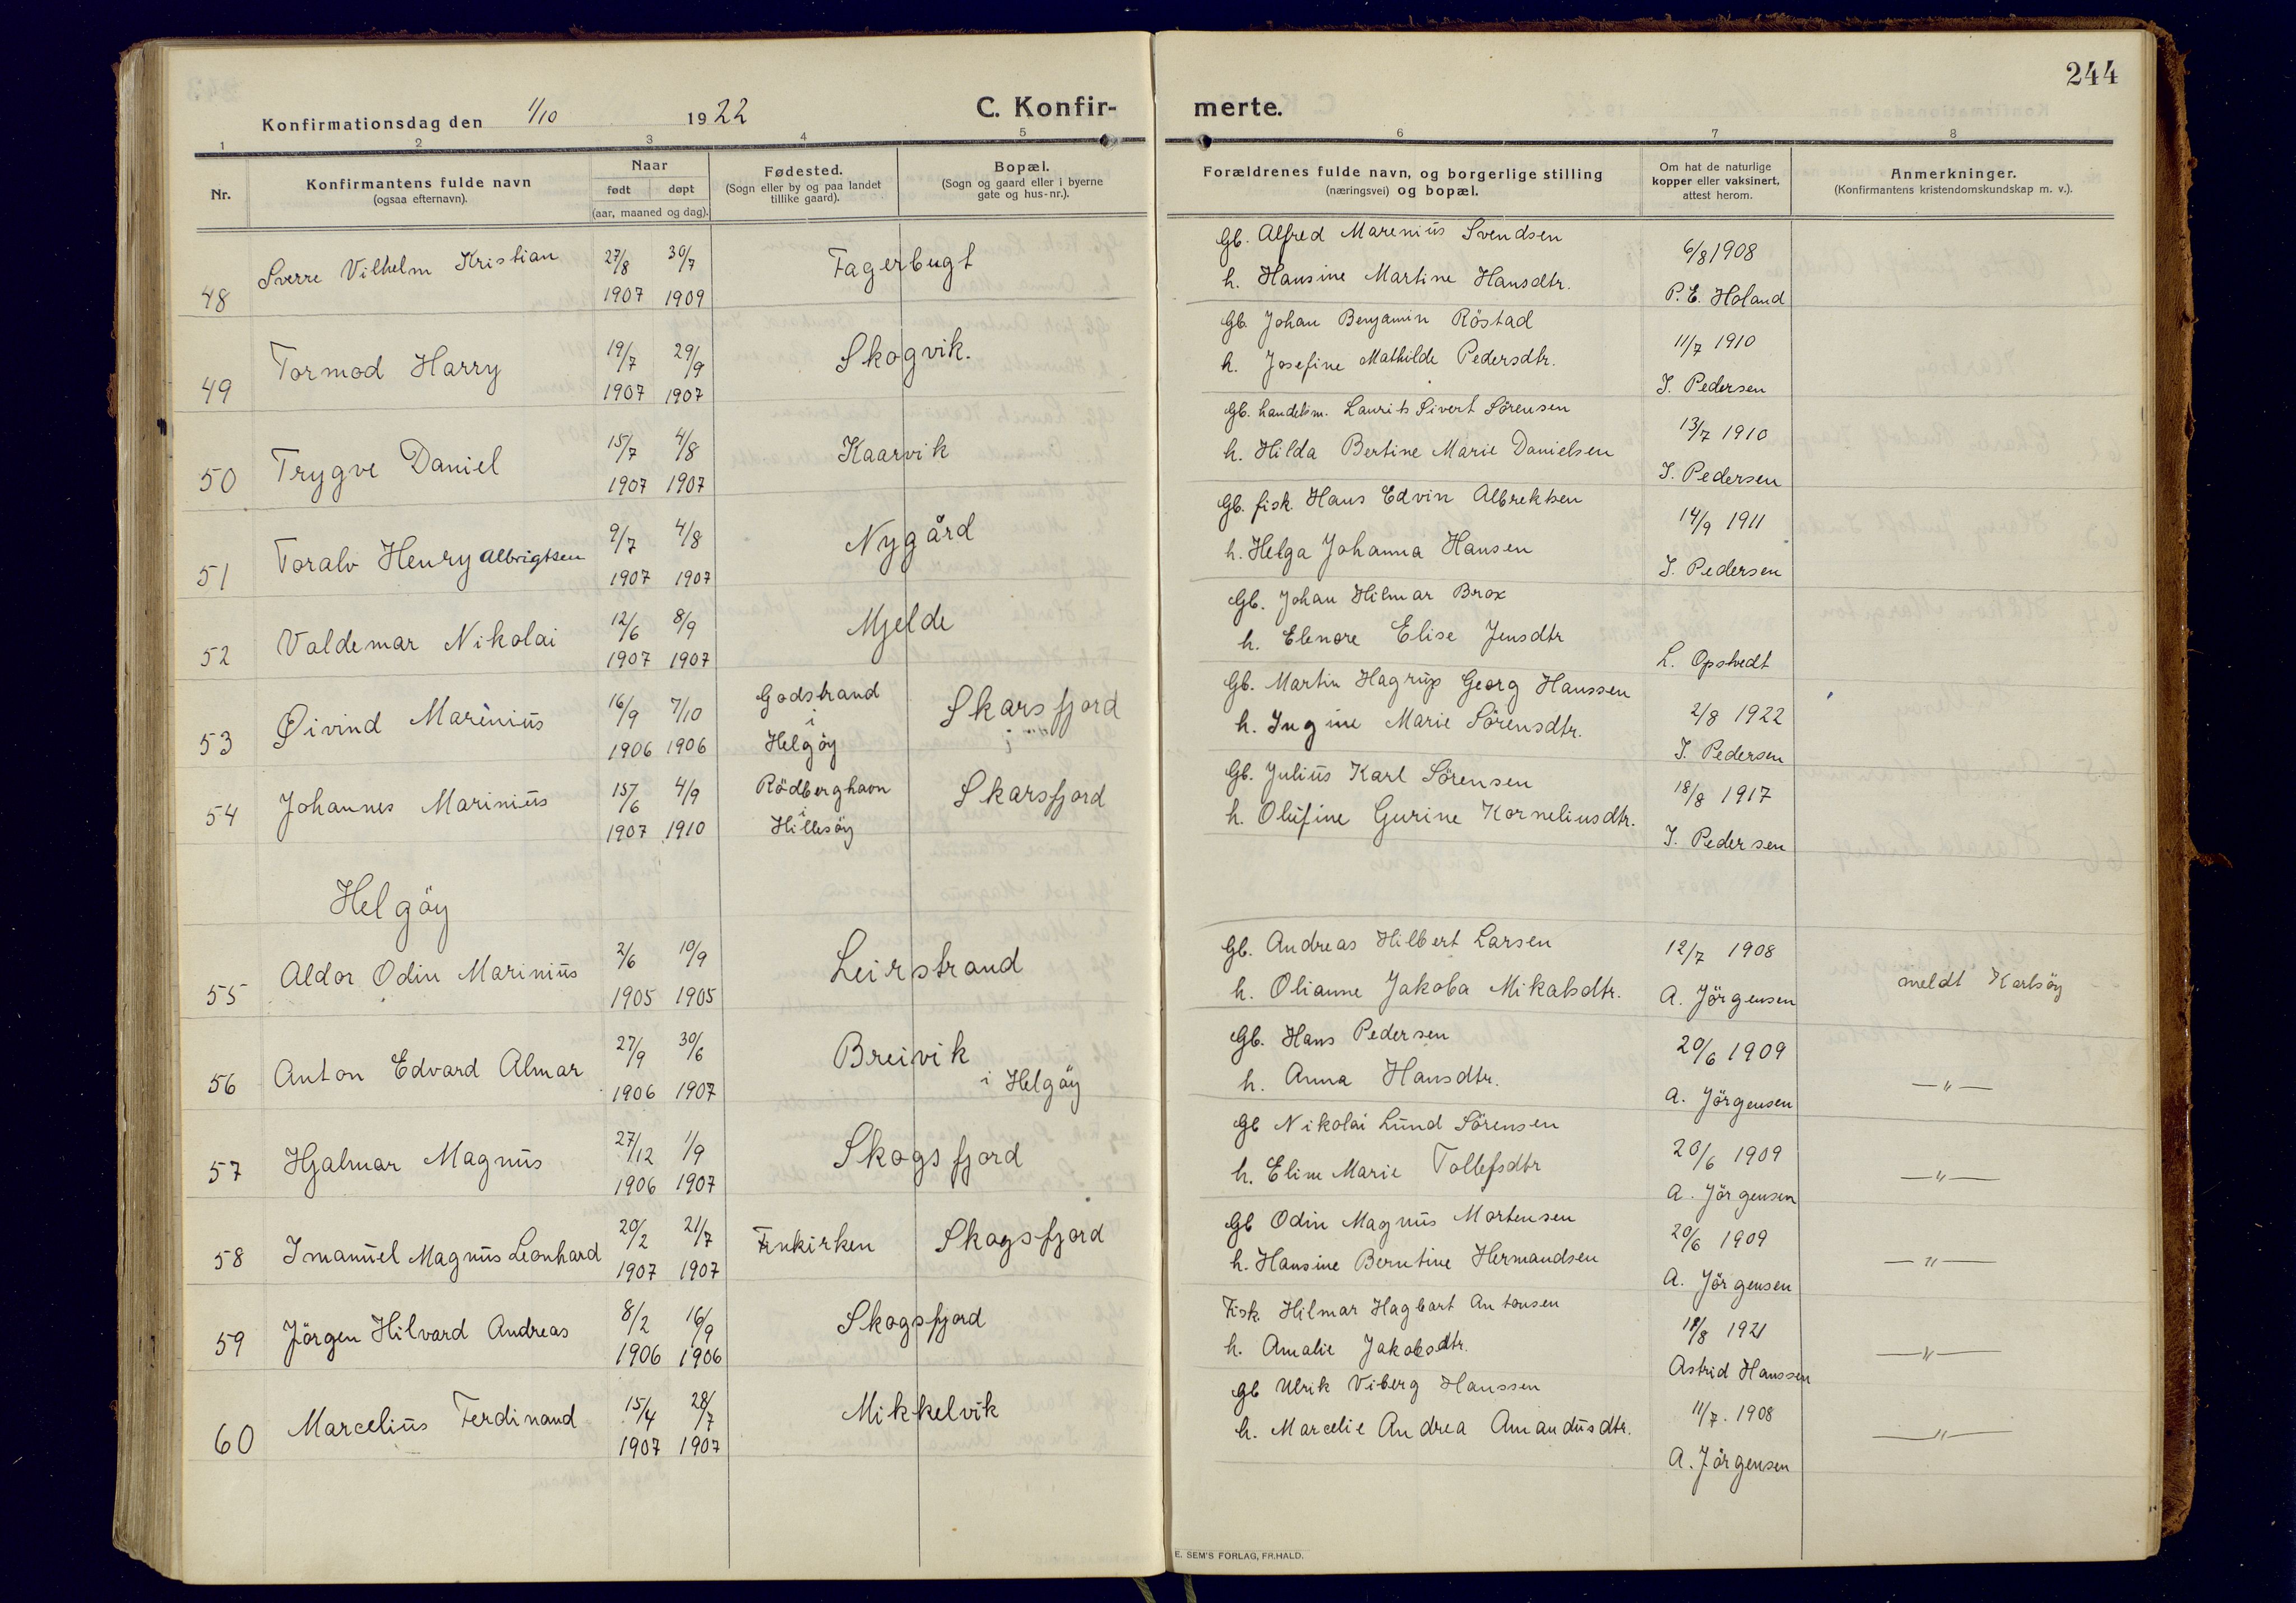 244
Konfirmationsdag den 1/10 1922
C. Konfirmerte.
1 2 3 4 5 6 7 8
Nr.
Konfirmantens fulde navn
(ogsaa efternavn).
Naar
født døpt
(aar, maaned og dag).
Fødested.
(Sogn eller by og paa landet
tillike gaard).
Bopæl.
(Sogn og gaard eller i byerne
gate og hus-nr.).
Forældrenes fulde navn, og borgerlige stilling
(næringsvei) og bopæl.
Om hat de naturlige
kopper eller vaksinert,
attest herom.
Anmerkninger.
(Konfirmantens kristendomskundskap m. v.).
48 Sverre Vilhelm Kristian 27/8 1907 30/7 1909 Fagerbugt
Gb. Alfred Marenius Svendsen
h. Hansine Martine Hansdtr.
6/8 1908
P. E. Holand
49 Tormod Harry 19/7 1907 29/9 1907 Skogvik.
Gb. Johan Benjamin Röstad
h. Josefine Mathilde Pedersdtr.
11/7 1910
I. Pedersen
50 Trygve Daniel 15/7 1907 4/8 1907 Kaarvik
Gb. handelsm. Laurits Sivert Sörensen
h. Hilda Bertine Marie Danielsen
13/7 1910
I. Pedersen
51 Toralv Henry Albrigtsen 9/7 1907 4/8 1907 Nygård
Gb. fisk. Hans Edvin Albrektsen
h. Helga Johanna Hansen
14/9 1911
I. Pedersen
52 Valdemar Nikolai 12/6 1907 8/9 1907 Mjelde
Gb. Johan Hilmar Brox
h. Elenore Elise Jensdtr
L. Opstvedt
53 Øivind Marenius 16/9 1906 7/10 1906
Godstrand
i
Helgöy
Skarsfjord
Gb. Martin Hagrup Georg Hanssen
h. Ingine Marie Sörensdtr.
2/8 1922
I. Pedersen
54 Johannes Marinius 15/6 1907 4/9 1910
Rödberghavn
i
Hillesöy
Skarsfjord
Gb. Julius Karl Sörensen
h. Olufine Gurine Korneliusdtr.
18/8 1917
I. Pedersen
Helgöy
55 Aldor Odin Marinius 2/6 1905 10/9 1905 Leirstrand
Gb. Andreas Hilbert Larsen
h. Olianne Jakoba Mikalsdtr.
12/7 1908
A. Jörgensen
meldt Karlsöy
56 Anton Edvard Almar 27/9 1906 30/6 1907 Breivik
i Helgöy
Gb. Hans Pedersen
h. Anna Hansdtr.
20/6 1909
A. Jörgensen
—"—
57 Hjalmar Magnus 27/12 1906 1/9 1907 Skogsfjord
Gb Nikolai Lund Sörensen
h. Eline Marie Tollefsdtr
20/6 1909
A. Jörgensen
—"—
58 Imanuel Magnus Leonhard 20/2 1907 21/7 1907 Finkirken Skogsfjord
Gb Odin Magnus Mortensen
h. Hansine Berntine Hermandsen
20/6 1909
A. Jörgensen
—"—
59 Jörgen Hilvard Andreas 8/2 1906 16/9 1906 Skogsfjord
Fisk. Hilmar Hagbart Antonsen
h. Amalie Jakobsdtr.
18/8 1921
Astrid Hanssen
—"—
60 Marcelius Ferdinand 15/4 1907 28/7 1907 Mikkelvik
Gb Ulrik Viberg Hanssen
h. Marcelie Andrea Amandusdtr.
11/7. 1908
A. Jörgensen
—"—
E. SEM'S FORLAG, FR.HALD.